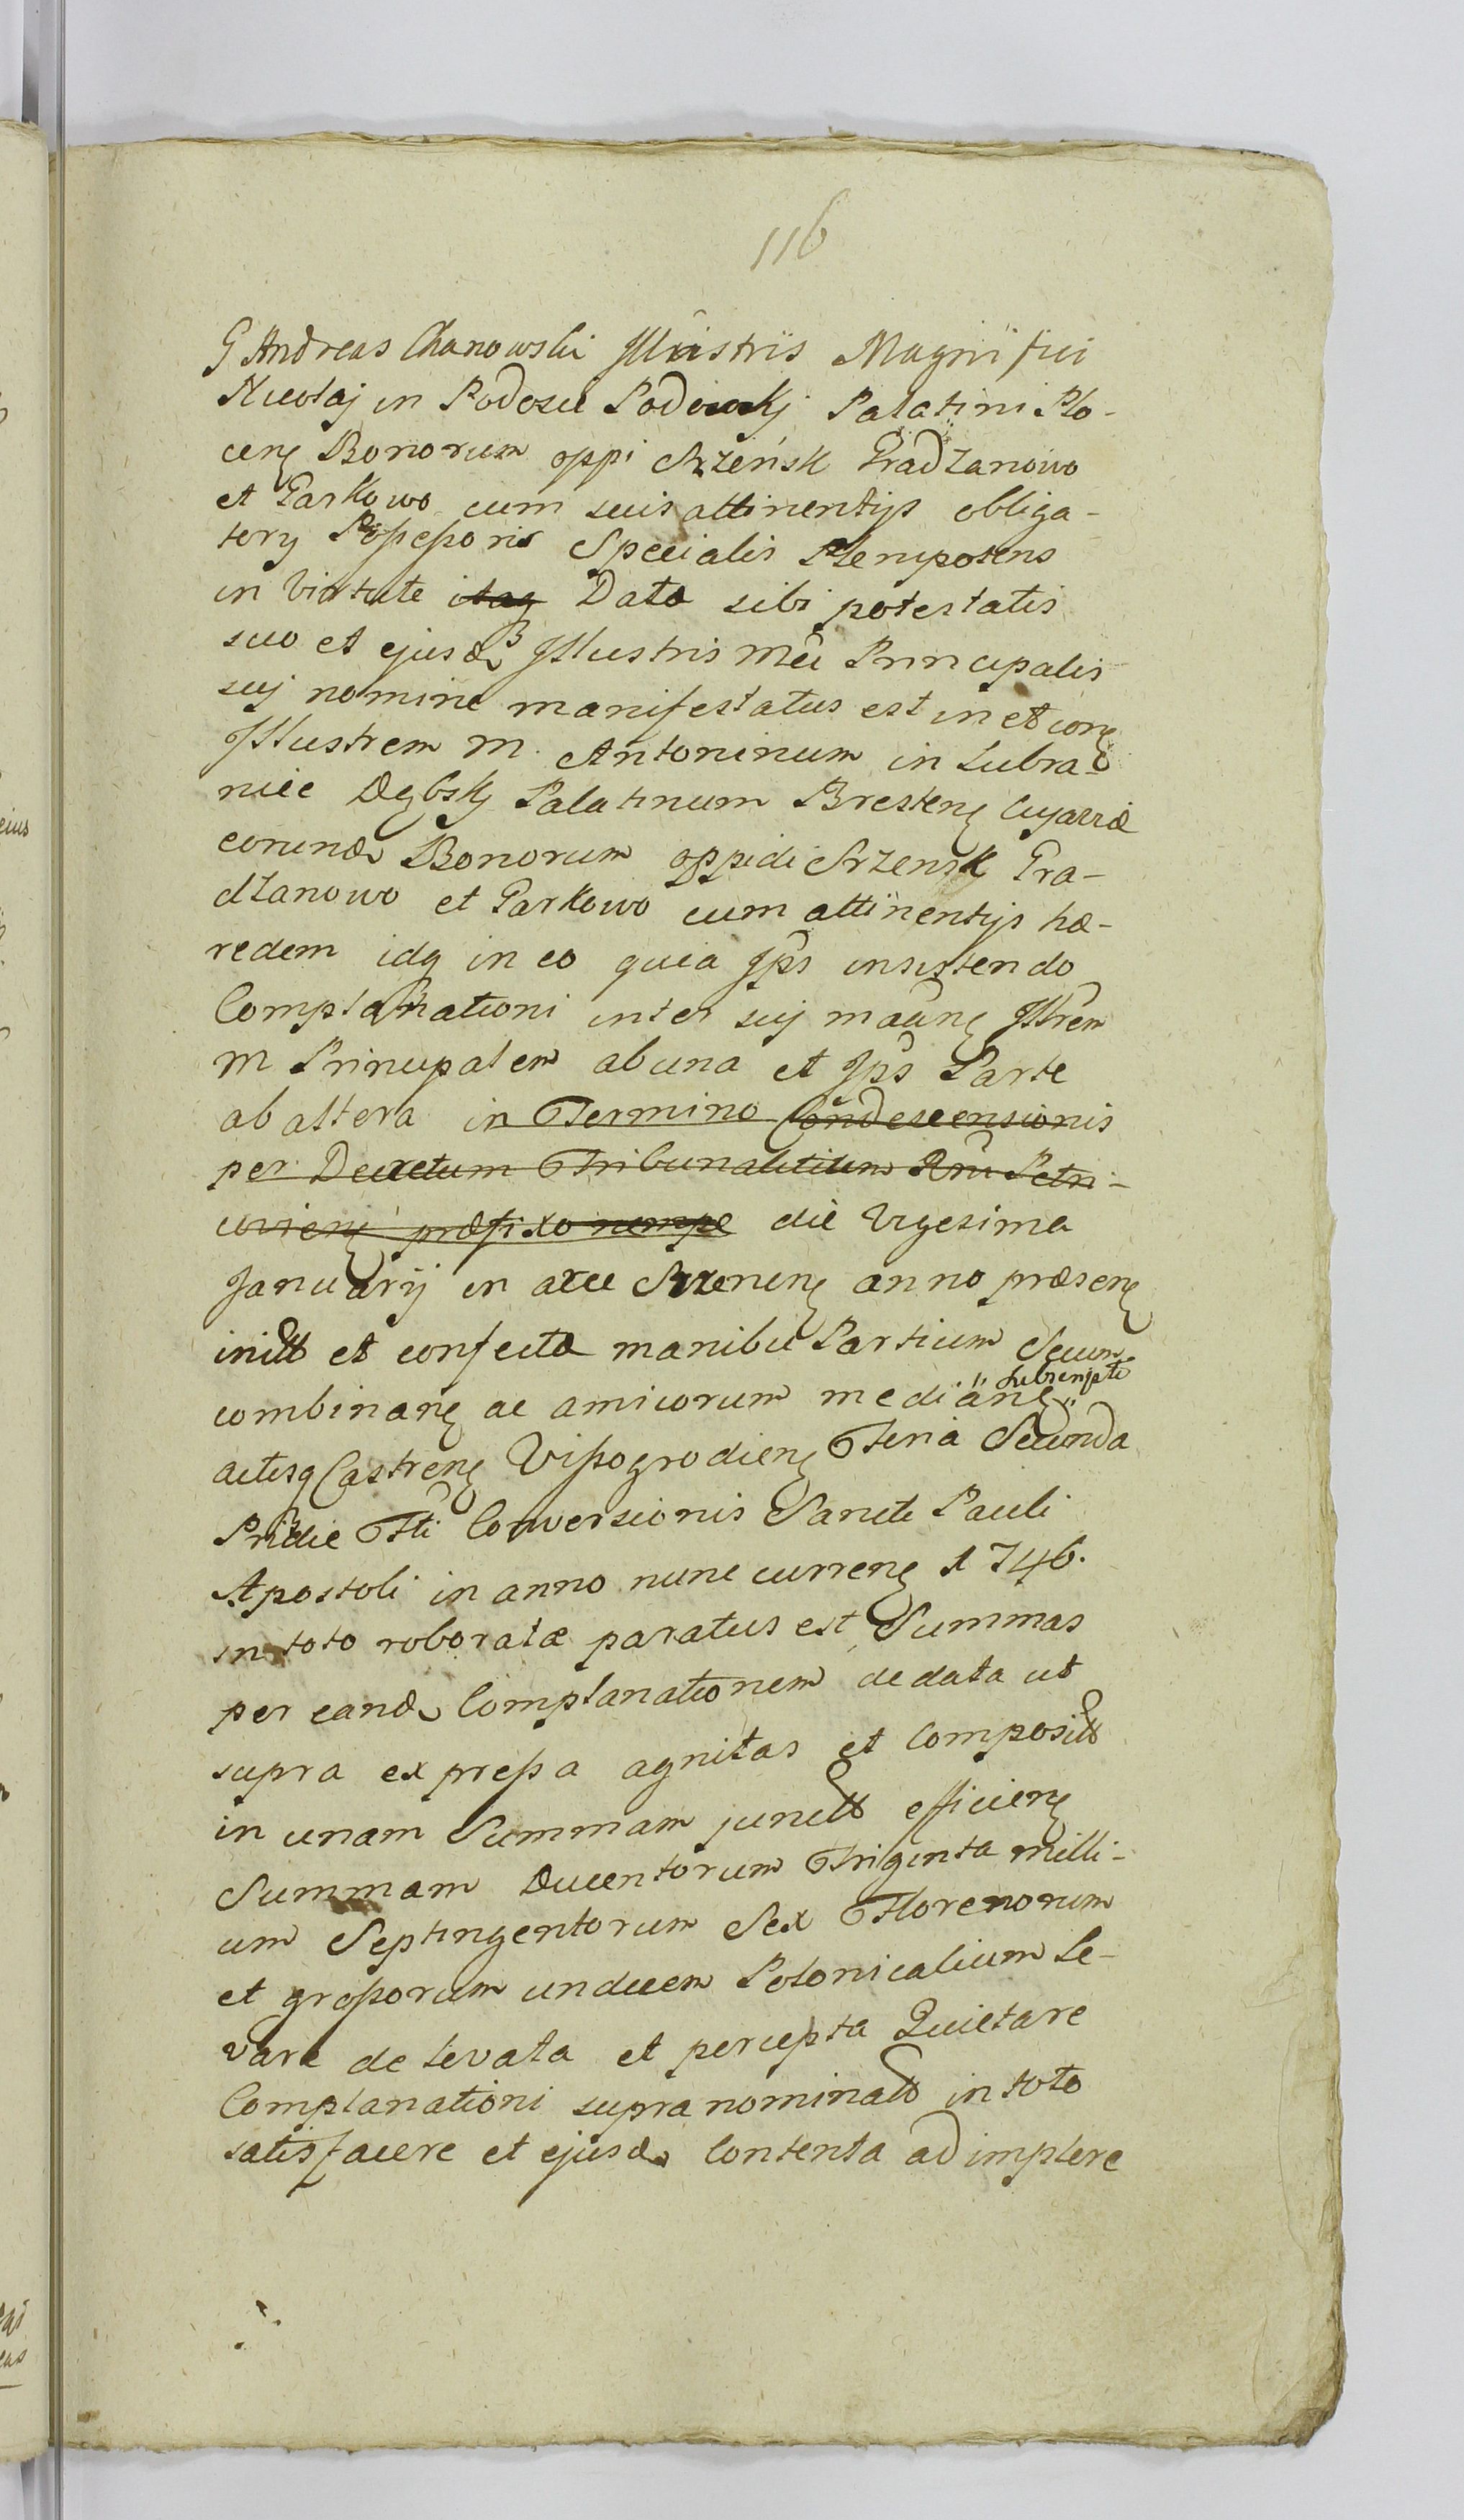 116
G Andreas Chanowski Jllustris Magnifici
Nicolaj in Podosie Podoskj Palatini Plo-
cenȩ Bonorum oppi Srzeńsk Gradzanowo
et Parkowo cum suis attinentijs obliga-
tory Possessoris Specialis Plenipotens
in Virtute itaq Data sibi potestatis
suo et ejusd Jllustris Mci Principalis
suj nomine manifestatus est in et conȩ
Jllustrem M. Antoninum in Lubra-
niec Dębskj Palatinum Brestenȩ Cujaviæ
eorund Bonorum oppidi Srzensk Gra-
dzanowo et Parkowo cum attinentijs hæ-
redem idq in eo quia Jps insistendo
Complanationi inter suj manȩ Jllrem
M Principalem ab una et Jps Parte
ab altera in Termino Condescensionis
per Decretum Tribunalitium Rni Petri-
covienȩ præfixo nempe die Vigesima
Januarij in arce Srzenenȩ anno præsenȩ
init et confecta manibus Partium Secum
subscripta
combinanȩ ac amicorum medianȩ
actisq Castrenȩ Vissogrodienȩ Feria Secunda
Pridie Fti Conversionis Sancti Pauli
Apostoli in anno nunc currenȩ 1746.
in toto roboratæ paratus est Summas
per eand Complanationem de data ut
supra expressa agnitas et composit
in unam Summam junct efficienȩ
Summam Ducentorum Triginta milli-
um Septingentorum Sex Florenorum
et grossorum undecem Polonicalium le-
vare de levata et percepta Quietare
Complanationi supranominat in toto
satisfacere et ejusd Contenta adimplere